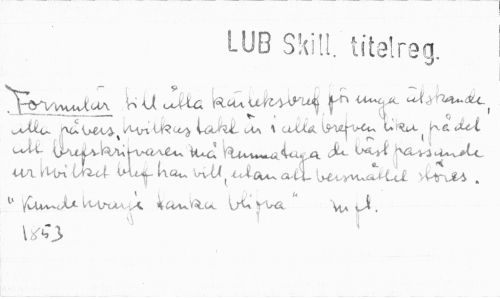 LUB Skill. titelreg.
Formulär till åtta kärleksbref för unga älskande,
alla på vers, hvilkas takt är i alla brefven lika, på det
att brefskrifvaren må kunna taga de bäst passande
ur hvilket bref han vill, utan att versmåttet störes.
"Kunde hvarje tanka blifva" m fl.
1853